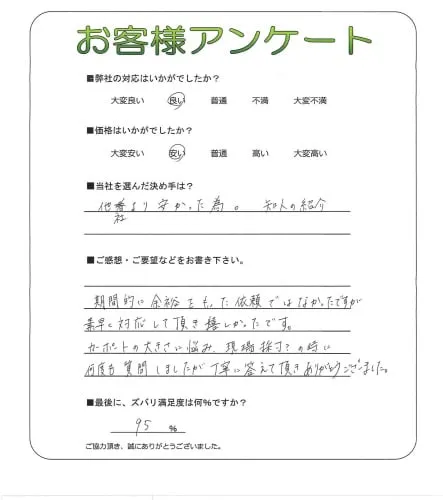 お客様アンケート
■弊社の対応はいかがでしたか?
大変良い 良い 普通 不満 大変不満
■価格はいかがでしたか?
大変安い 安い 普通 高い 大変高い
■当社を選んだ決め手は?
他社より安かった為。 知人の紹介
■ご感想・ご要望などをお書き下さい。
期間的に余裕をもった依頼ではなかったですが
素早く対応して頂き嬉しかったです。
カーポートの大きさに悩み、現場採寸の時に
何度も質問しましたが丁寧に答えて頂きありがとうございました。
■最後に、ズバリ満足度は何%ですか?
95 %
ご協力頂き、誠にありがとうございました。